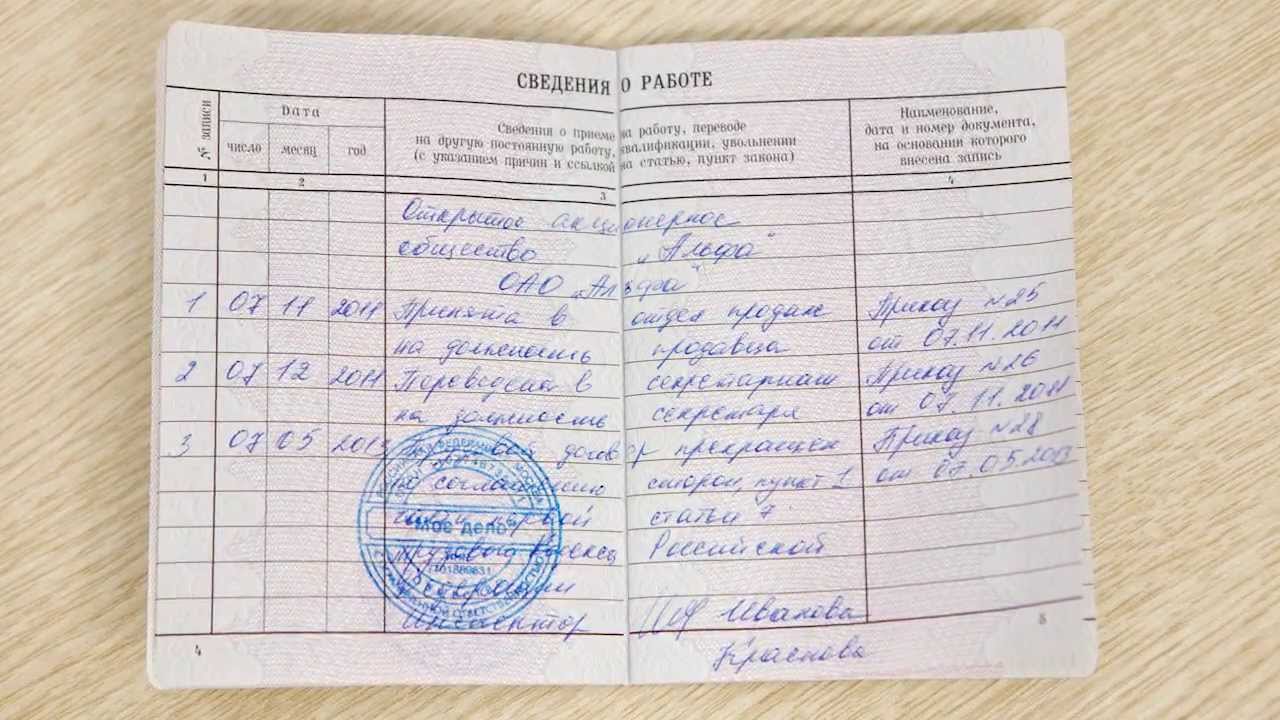 СВЕДЕНИЯ О РАБОТЕ
№ записи
Дата
число месяц год
Сведения о приеме на работу, переводе
на другую постоянную работу, квалификации, увольнении
(с указанием причин и ссылкой на статью, пункт закона)
Наименование,
дата и номер документа,
на основании которого
внесена запись
1 2 3 4
Открытое акционерное
общество „Альфа"
ОАО „Альфа"
1 07 11 2011 Принята в отдел продаж Приказ №25
на должность продавца от 07.11.2011
2 07 12 2011 Переведена в секретариат Приказ №26
на должность секретаря от 07.11.2011
3 07 05 2013 договор прекращен Приказ №28
по соглашению сторон, пункт 1 от 07.05.2013
статьи 7
Трудового Кодекса Российской
Федерации
Инспектор Иванова
Краснова
МОЕ ДЕЛО
4 5